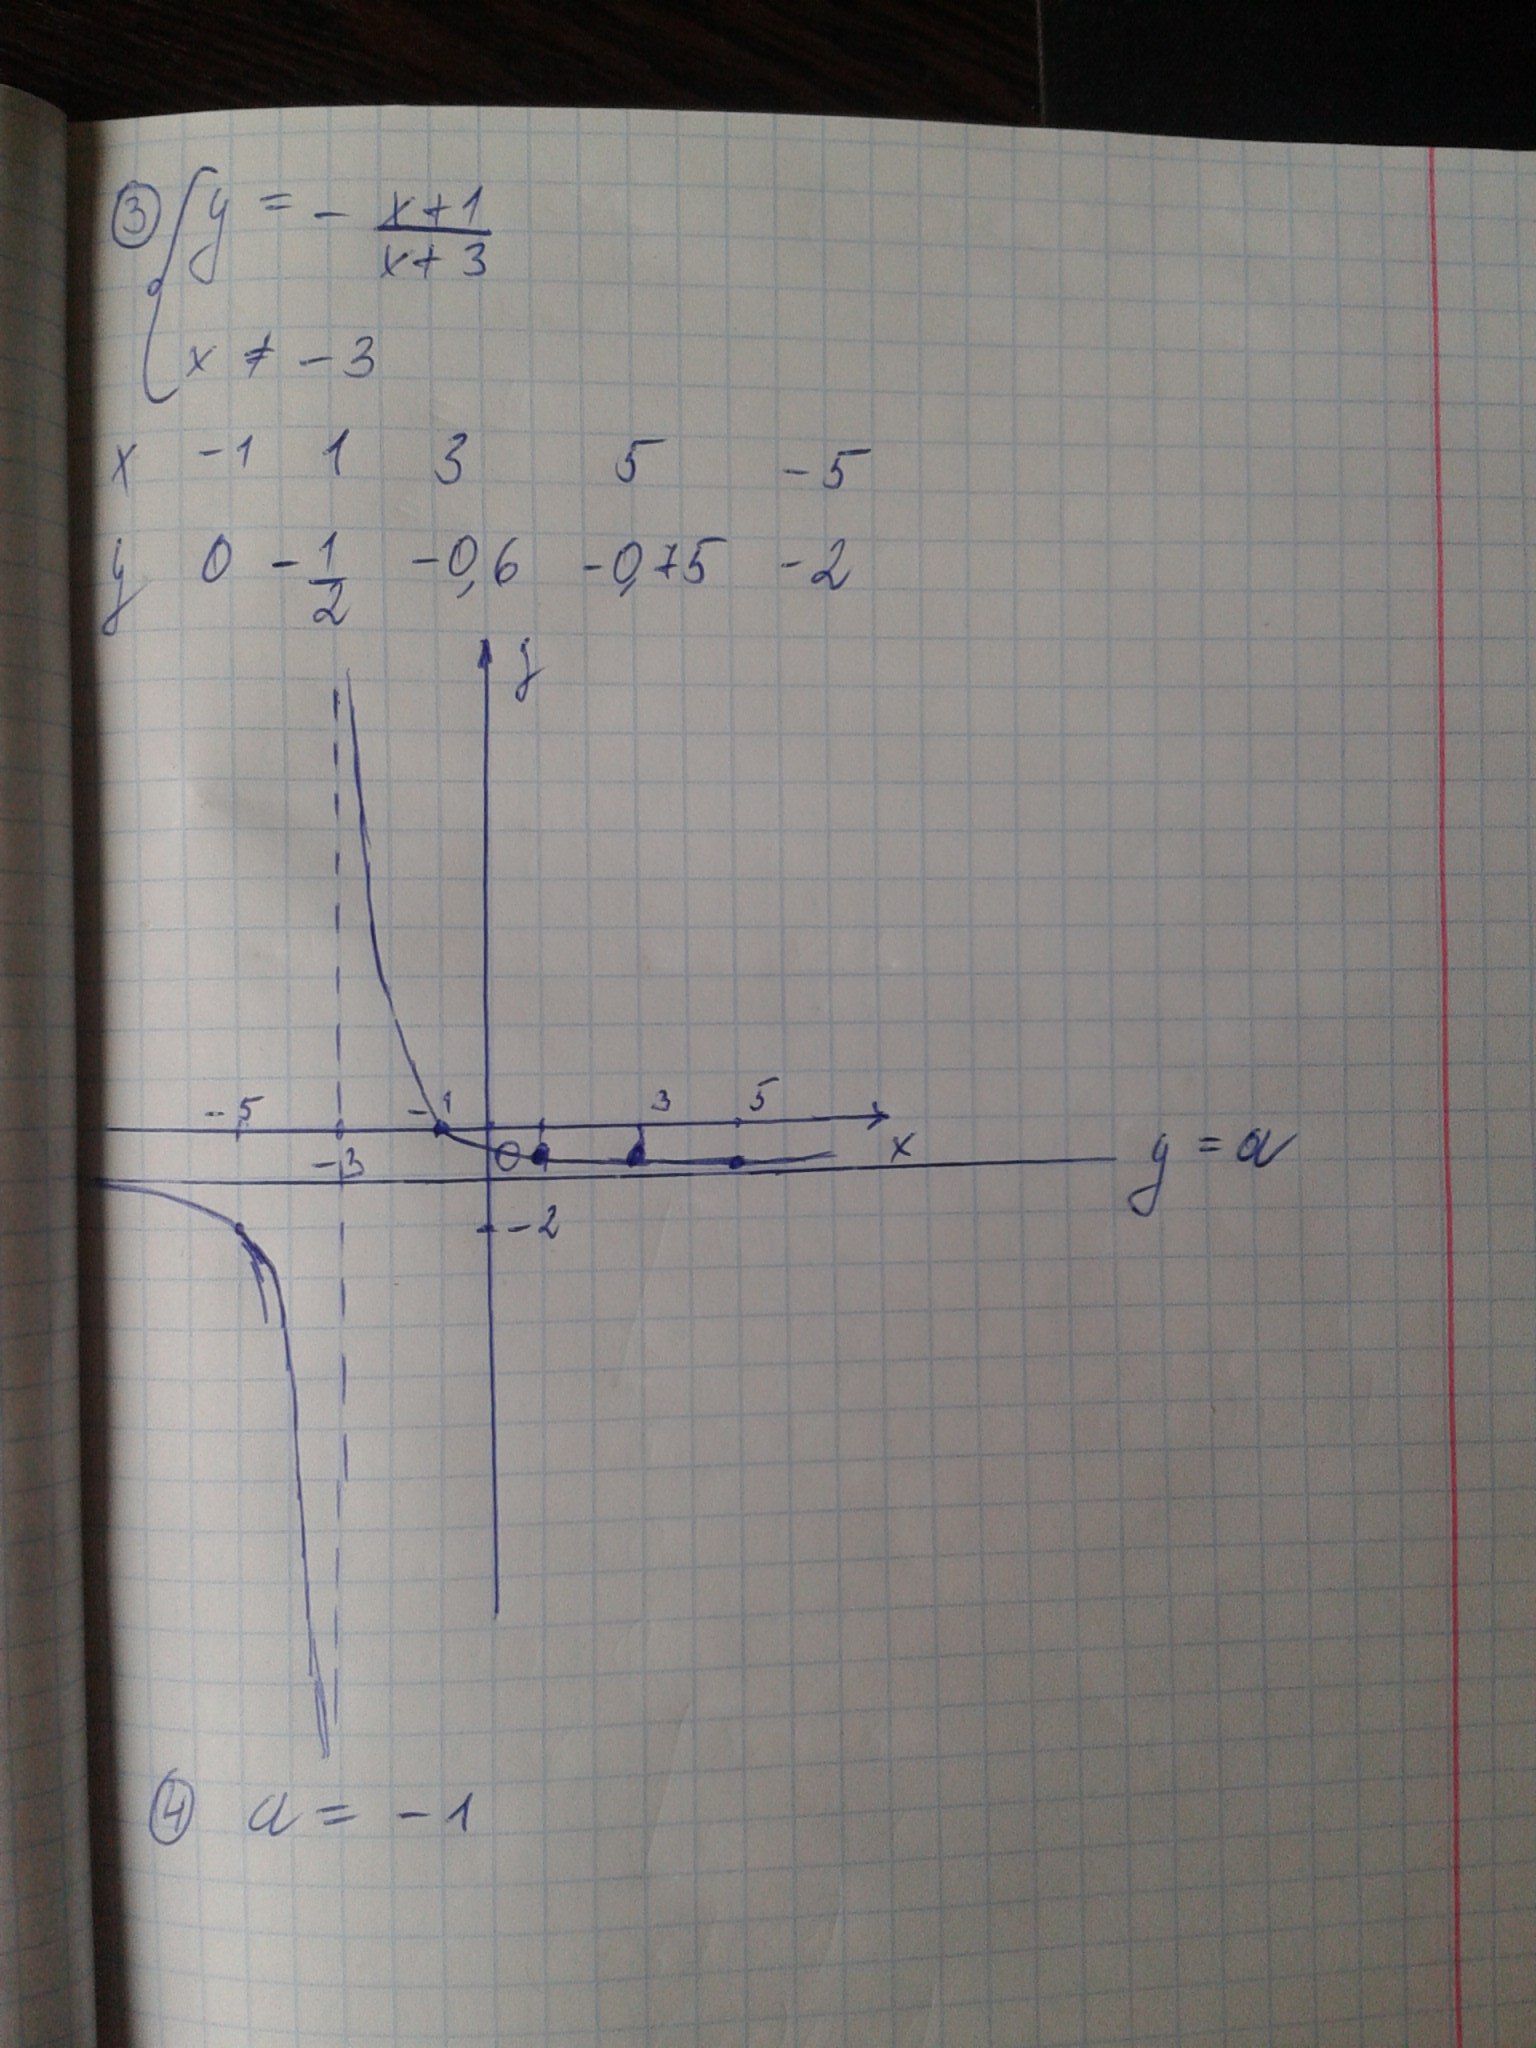 ③ { y = - x+1
x+3
x ≠ -3
x -1 1 3 5 -5
y 0 -1/2 -0,6 -0,75 -2
y
-5 -1 3 5
-3 0 x y = a
-2
④ a = -1